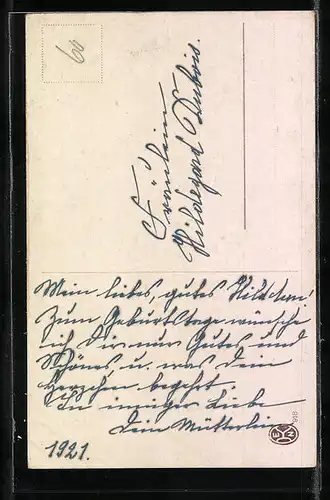 60
Fräulein
Hildegard Dubois.
Mein liebes, gutes Hildchen!
Zum Geburtstage wünsche
ich Dir nur Gutes und
Schönes, u. was Dein
Herzchen begehrt.
In inniger Liebe
Dein Mütterlein
1921.
E N